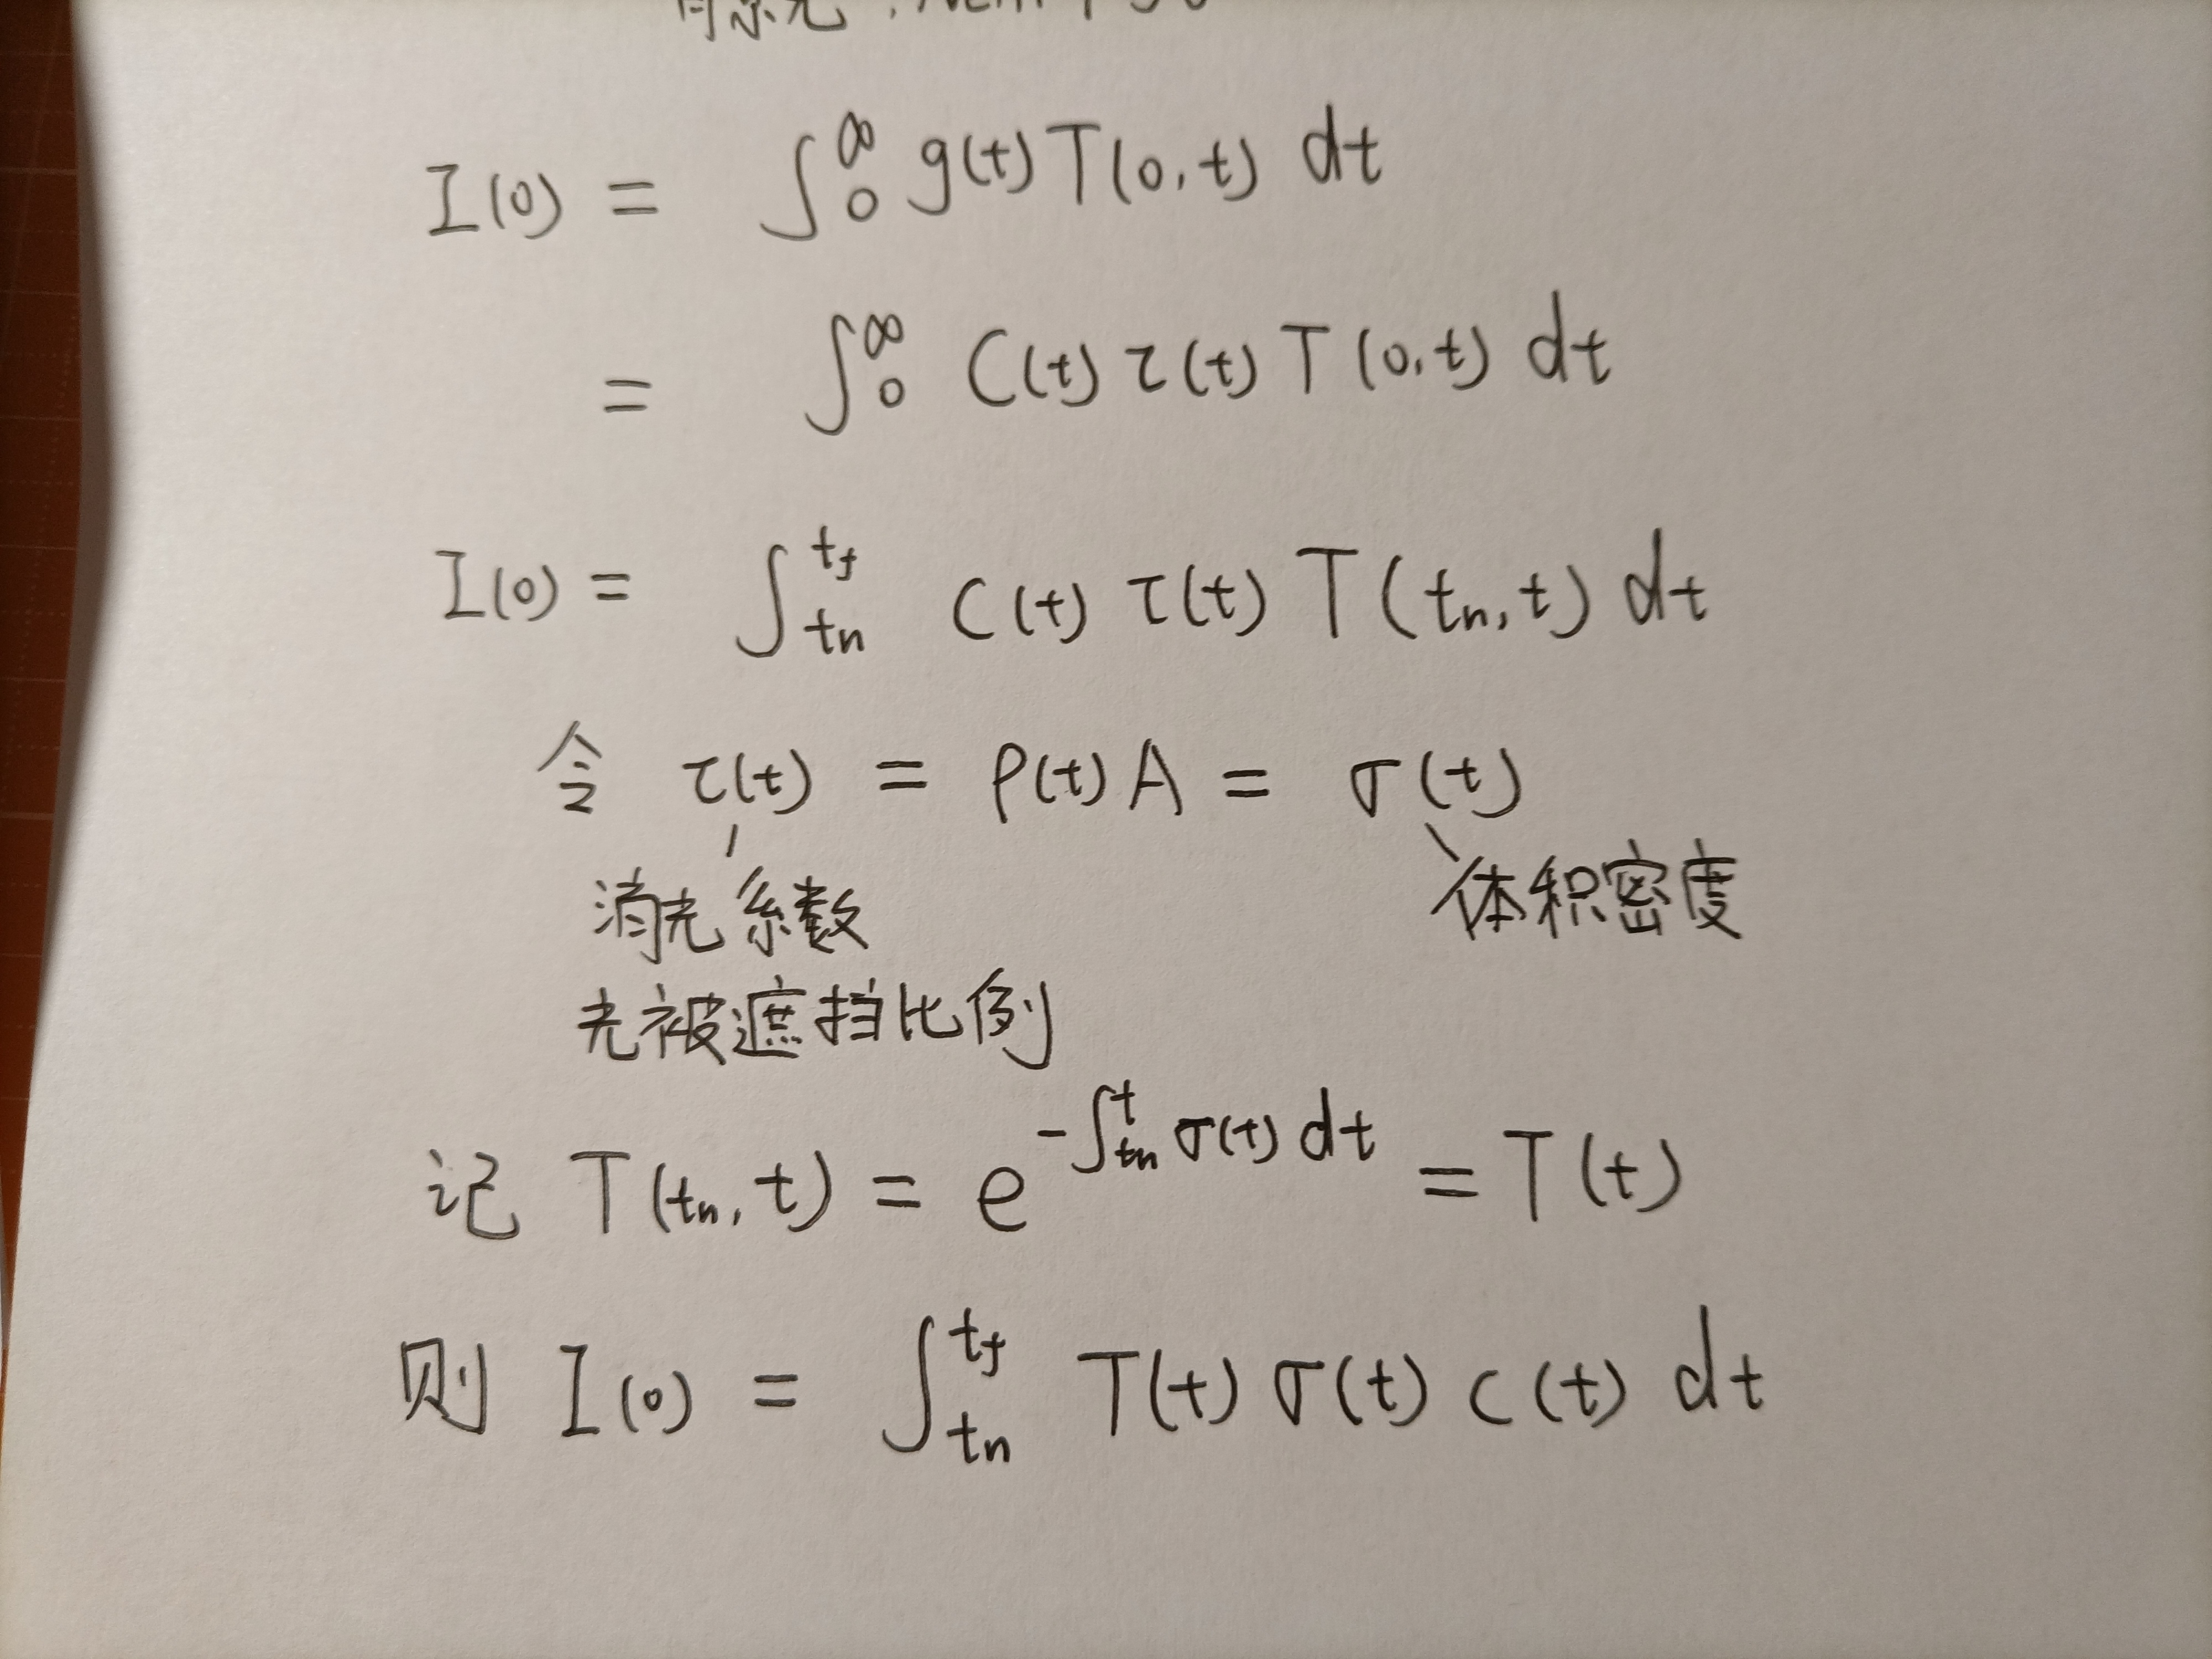 I(0) = ∫₀^∞ g(t) T(0,t) dt
= ∫₀^∞ C(t) τ(t) T(0,t) dt
I(0) = ∫_{tn}^{tf} C(t) τ(t) T(tn,t) dt
令 τ(t) = ρ(t) A = σ(t)
消光系数 体积密度
光被遮挡比例
记 T(tn,t) = e^{-∫_{tn}^{t} σ(t) dt} = T(t)
则 I(0) = ∫_{tn}^{tf} T(t) σ(t) c(t) dt